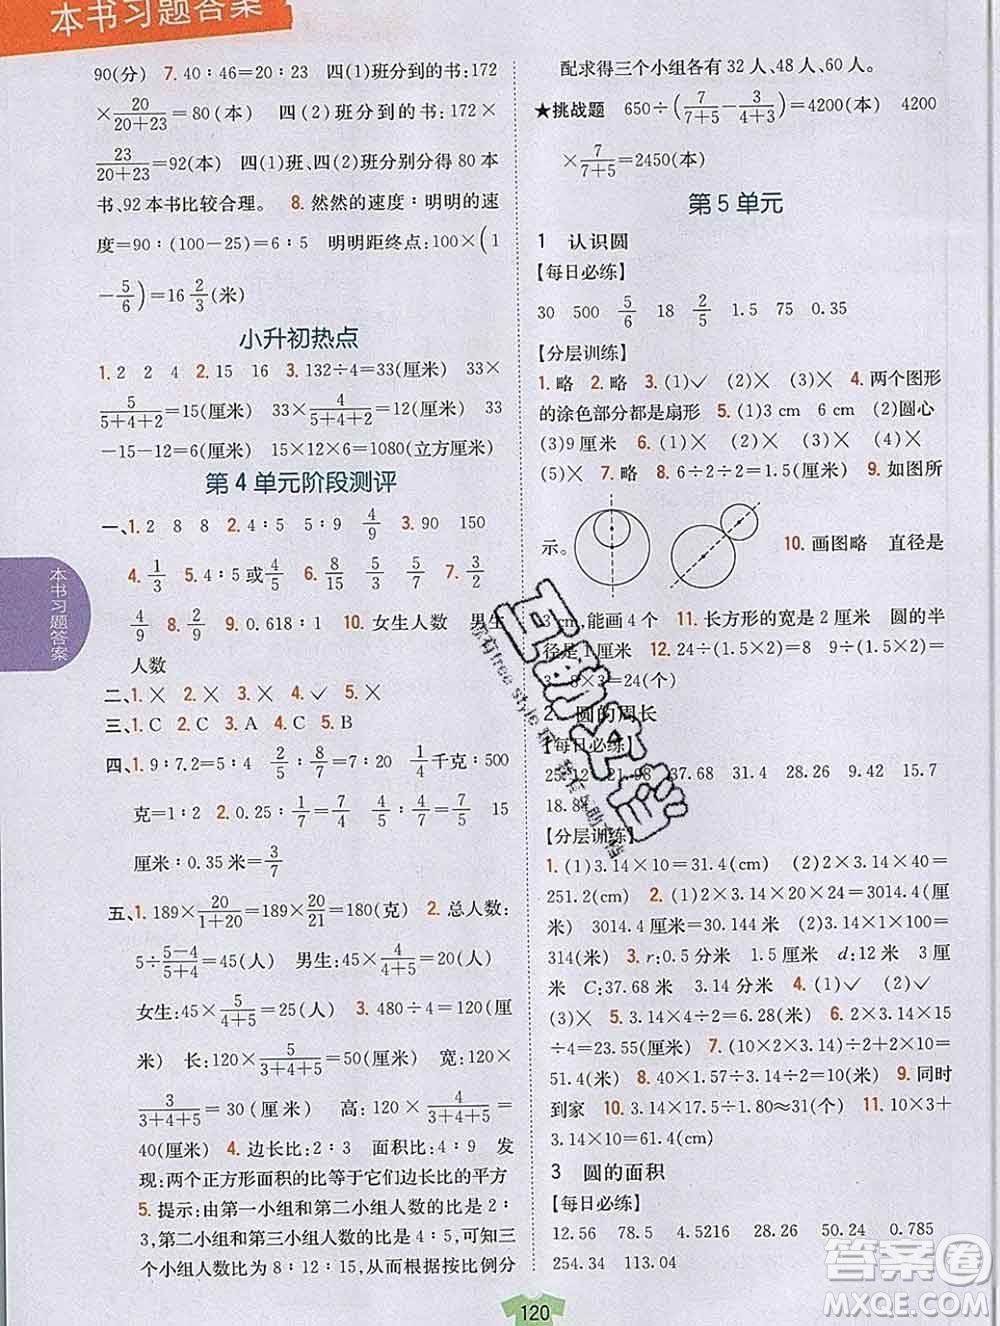 本书习题答案
90(分)　7. 40∶46=20∶23　四(1)班分到的书:172
×20/(20+23)=80(本)　四(2)班分到的书:172×
23/(20+23)=92(本)　四(1)班、四(2)班分别分得 80 本
书、92 本书比较合理。　8. 然然的速度∶明明的速
度=90∶(100-25)=6∶5　明明距终点:100×(1
-5/6)=16 2/3(米)
小升初热点
1. 2　2　4　2. 15　16　3. 132÷4=33(厘米)　33×
5/(5+4+2)=15(厘米)　33×4/(5+4+2)=12(厘米)　33
-15-12=6(厘米)　15×12×6=1080(立方厘米)
第 4 单元阶段测评
一、1. 2　8　8　2. 4∶5　5∶9　4/9　3. 90　150
4. 1/3　5. 4∶5或4/5　6. 8/15　7. 3/2
4/9　8. 2/9　9. 0.618∶1　10. 女生人数　男生
人数
二、1. ×　2. ×　3. ×　4. ✓　5. ×
三、1. C　2. C　3. A　4. C　5. B
四、1. 9∶7.2=5∶4　2/5∶8/7=7∶20　1/4千克∶500
克=1∶2　2. 0.25∶1/7=7/4　4/5∶4/7=7/5　15
厘米∶0.35 米=3/7
五、1. 189×20/(1+20)=189×20/21=180(克)　2. 总人数:
5÷(5-4)/(5+4)=45(人)　男生:45×4/(4+5)=20(人)
女生:45×5/(4+5)=25(人)　3. 480÷4=120(厘
米)　长:120×5/(3+4+5)=50(厘米)　宽:120×
3/(3+4+5)=30(厘米)　高:120×4/(3+4+5)=
40(厘米)　4. 边长比:2∶3　面积比:4∶9　发
现:两个正方形面积的比等于它们边长比的平方
5. 提示:由第一小组和第二小组人数的比是 2∶
3,第二小组和第三小组人数的比是 4∶5,可知三
个小组人数比为 8∶12∶15,从而根据按比例分
配求得三个小组各有 32 人、48 人、60 人。
★挑战题　650÷(7/(7+5)-3/(4+3))=4200(本)　4200
×7/(7+5)=2450(本)
第 5 单元
1　认识圆
【每日必练】
30　500　5/6　18　2/5　1.5　75　0.35
【分层训练】
1. 略　2. 略　3. (1)✓　(2)×　(3)×　4. 两个图形
的涂色部分都是扇形　5. (1)3 cm　6 cm　(2)圆心
(3)9 厘米　6. (1)×　(2)×　(3)×　(4)×
(5)×　7. 略　8. 6÷2÷2=1.5(厘米)　9. 如图所
示。　10. 画图略　直径是
3 cm,能画 4 个　11. 长方形的宽是 2 厘米　圆的半
径是 1 厘米　12. 24÷(1.5×2)=8　9÷(1.5×2)=
3　8×3=24(个)
2　圆的周长
【每日必练】
25.12　21.98　37.68　31.4　28.26　9.42　15.7
18.84
【分层训练】
1. (1)3.14×10=31.4(cm)　(2)2×3.14×40=
251.2(cm)　2. (1)2×3.14×20×24=3014.4(厘
米)　3014.4 厘米=30.144 米　(2)3.14×1×100=
314(米)　3. r:0.5 分米　3.14 分米　d:12 厘
米　C:37.68 米　3.14 分米　4. (1)✓　(2)✓
(3)×　5. 3.14×1×2=6.28(米)　6. 2×3.14×15
÷4=23.55(米)　7. (10×2×3.14)÷2+2×10=
51.4(米)　8. 40×1.57÷3.14÷2=10(米)　9. 同时
到家　10. 3.14×17.5÷1.8≈31(个)　11. 10×3+
3.14×10=61.4(cm)
3　圆的面积
【每日必练】
12.56　78.5　4.5216　28.26　50.24　0.785
254.34　113.04
本书习题答案
120
答案圈
MXQE.COM